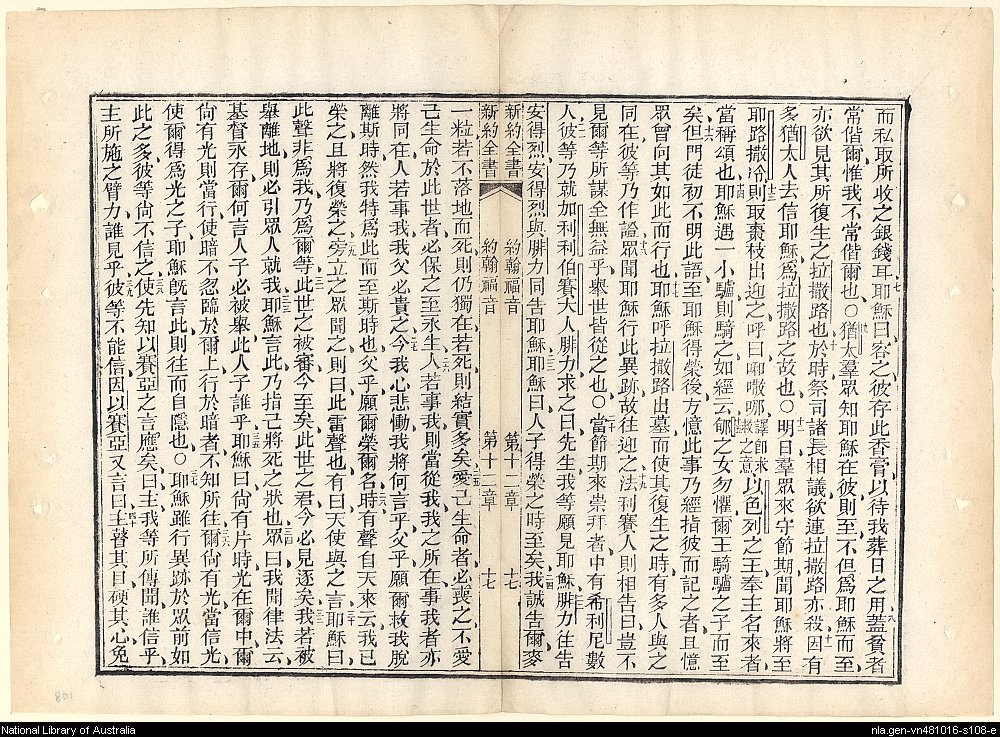 而私取所收之銀錢耳耶穌曰容之彼存此香膏以待我葬日之用蓋貧者
常偕爾惟我不常偕爾也○猶太羣眾知耶穌在彼則至不但爲耶穌而至
亦欲見其所復生之拉撒路也於時祭司諸長相議欲連拉撒路亦殺因有
多猶太人去信耶穌爲拉撒路之故也○明日羣眾來守節期聞耶穌將至
耶路撒冷則取棗枝出迎之呼曰哪譯卽求救之意以色列之王奉主名來者
當稱頌也耶穌遇一小驢則騎之如經云郇之女勿懼爾王騎驢之子而至
矣但門徒初不明此語至耶穌得榮後方憶此事乃經指彼而記之者且憶
眾曾向其如此而行也耶穌呼拉撒路出墓而使其復生之時有多人與之
同在彼等乃作證眾聞耶穌行此異跡故往迎之法利賽人則相告曰豈不
見爾等所謀全無益乎舉世皆從之也○當節期來崇拜者中有希利尼數
人彼等乃就加利利伯賽大人腓力求之曰先生我等願見耶穌腓力往告
安得烈安得烈與腓力同告耶穌耶穌曰人子得榮之時至矣我誠告爾麥
新約全書 約翰福音 第十二章 十七
新約全書 約翰福音 第十二章 十七
一粒若不落地而死則仍獨在若死則結實多矣愛己生命者必喪之不愛
己生命於此世者必保之至永生人若事我則當從我我之所在事我者亦
將同在人若事我我父必貴之今我心悲慟我將何言乎父乎願爾救我脫
離斯時然我特爲此而至斯時也父乎願爾榮爾名時有聲自天來云我已
榮之且將復榮之旁立之眾聞之則曰此雷聲也有曰天使與之言耶穌曰
此聲非爲我乃爲爾等此世之被審今至矣此世之君今必見逐矣我若被
舉離地則必引眾人就我耶穌言此乃指己將死之狀也眾曰我聞律法云
基督永存爾何言人子必被舉此人子誰乎耶穌曰尙有片時光在爾中爾
尙有光則當行使暗不忽臨於爾上行於暗者不知所往爾尙有光當信光
使爾得爲光之子耶穌旣言此則往而自隱也○耶穌雖行異跡於眾前如
此之多彼等尙不信之使先知以賽亞之言應矣曰主我等所傳聞誰信乎
主所施之臂力誰見乎彼等不能信因以賽亞又言曰主瞽其目硬其心免
801
National Library of Australia
nla.gen-vn481016-s108-e